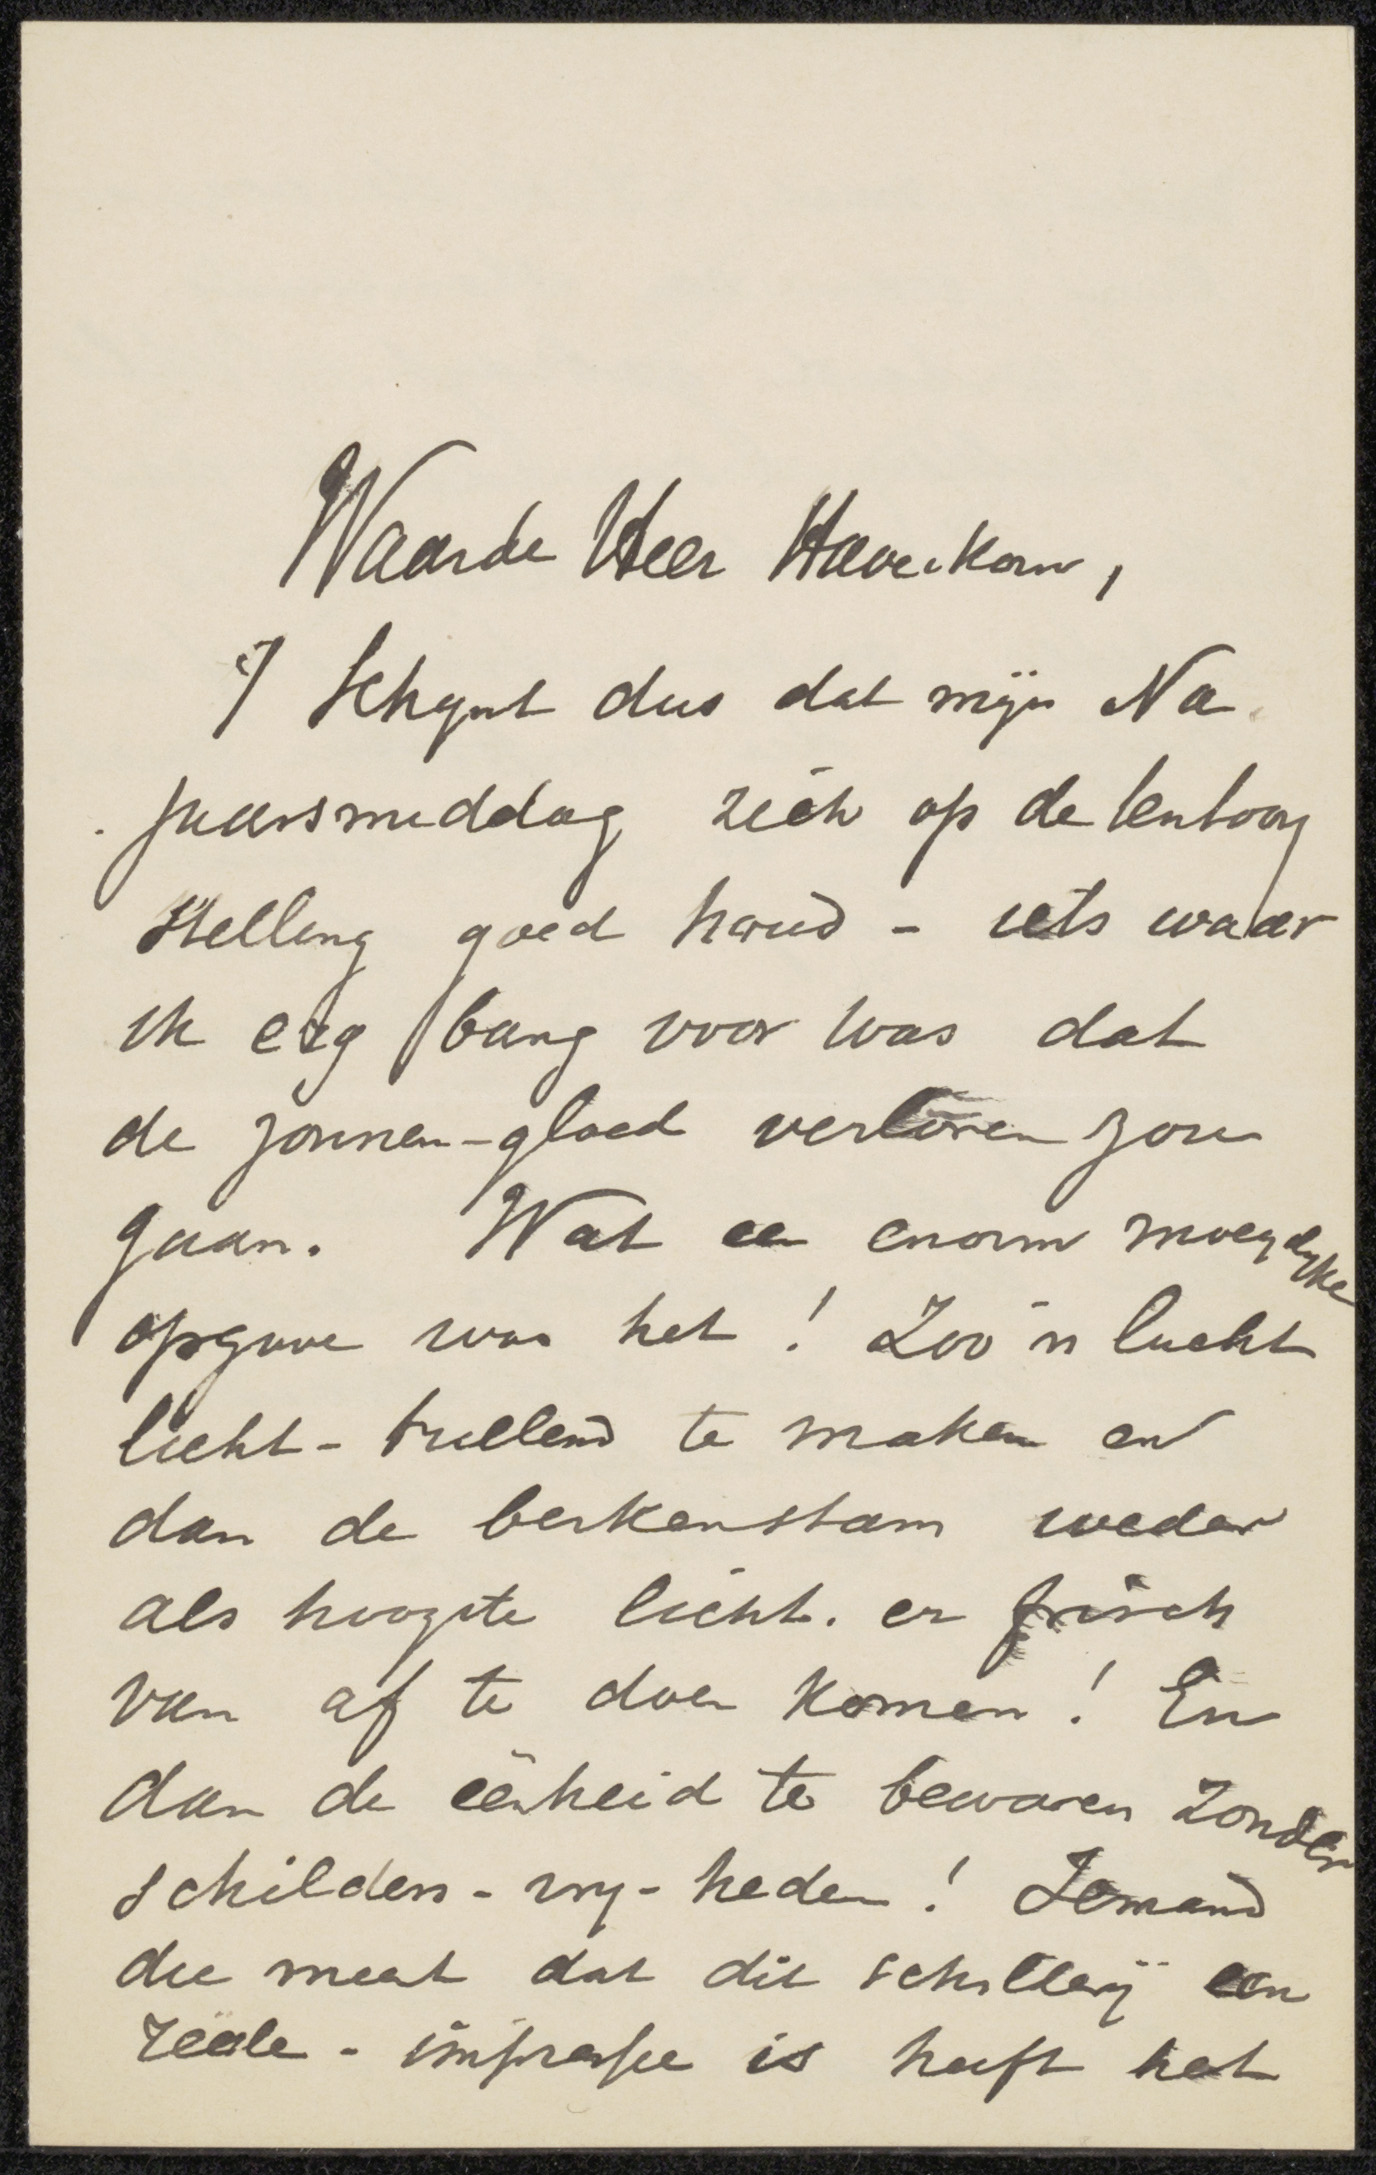 Waarde Heer Haverkorn,
't Schynt dus dat mijn Na
jaarsmiddag zich op de tentoon
stelling goed houd - iets waar
ik erg bang voor was dat
de zonnen-gloed verloren zou
gaan. Wat een enorm moeylyke
opgave was het! Zoo'n lucht
licht-trillend te maken en
dan de berkenstam weder
als hoogste licht. er frisch
van af te doen komen! En
dan de eênheid te bewaren zonder
schilders-vry-heden! Iemand
die meent dat dit schilderij een
reëele-impressie is heeft het